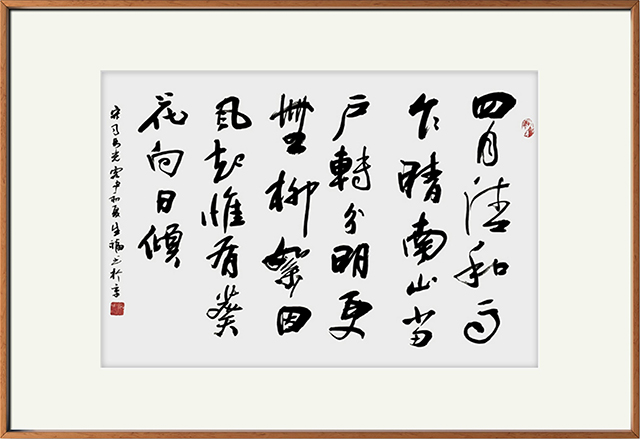 四月清和雨
乍晴南山当
户轉分明更
無柳絮因
風起惟有葵
花向日傾
宋司马光客中初夏生福之於京